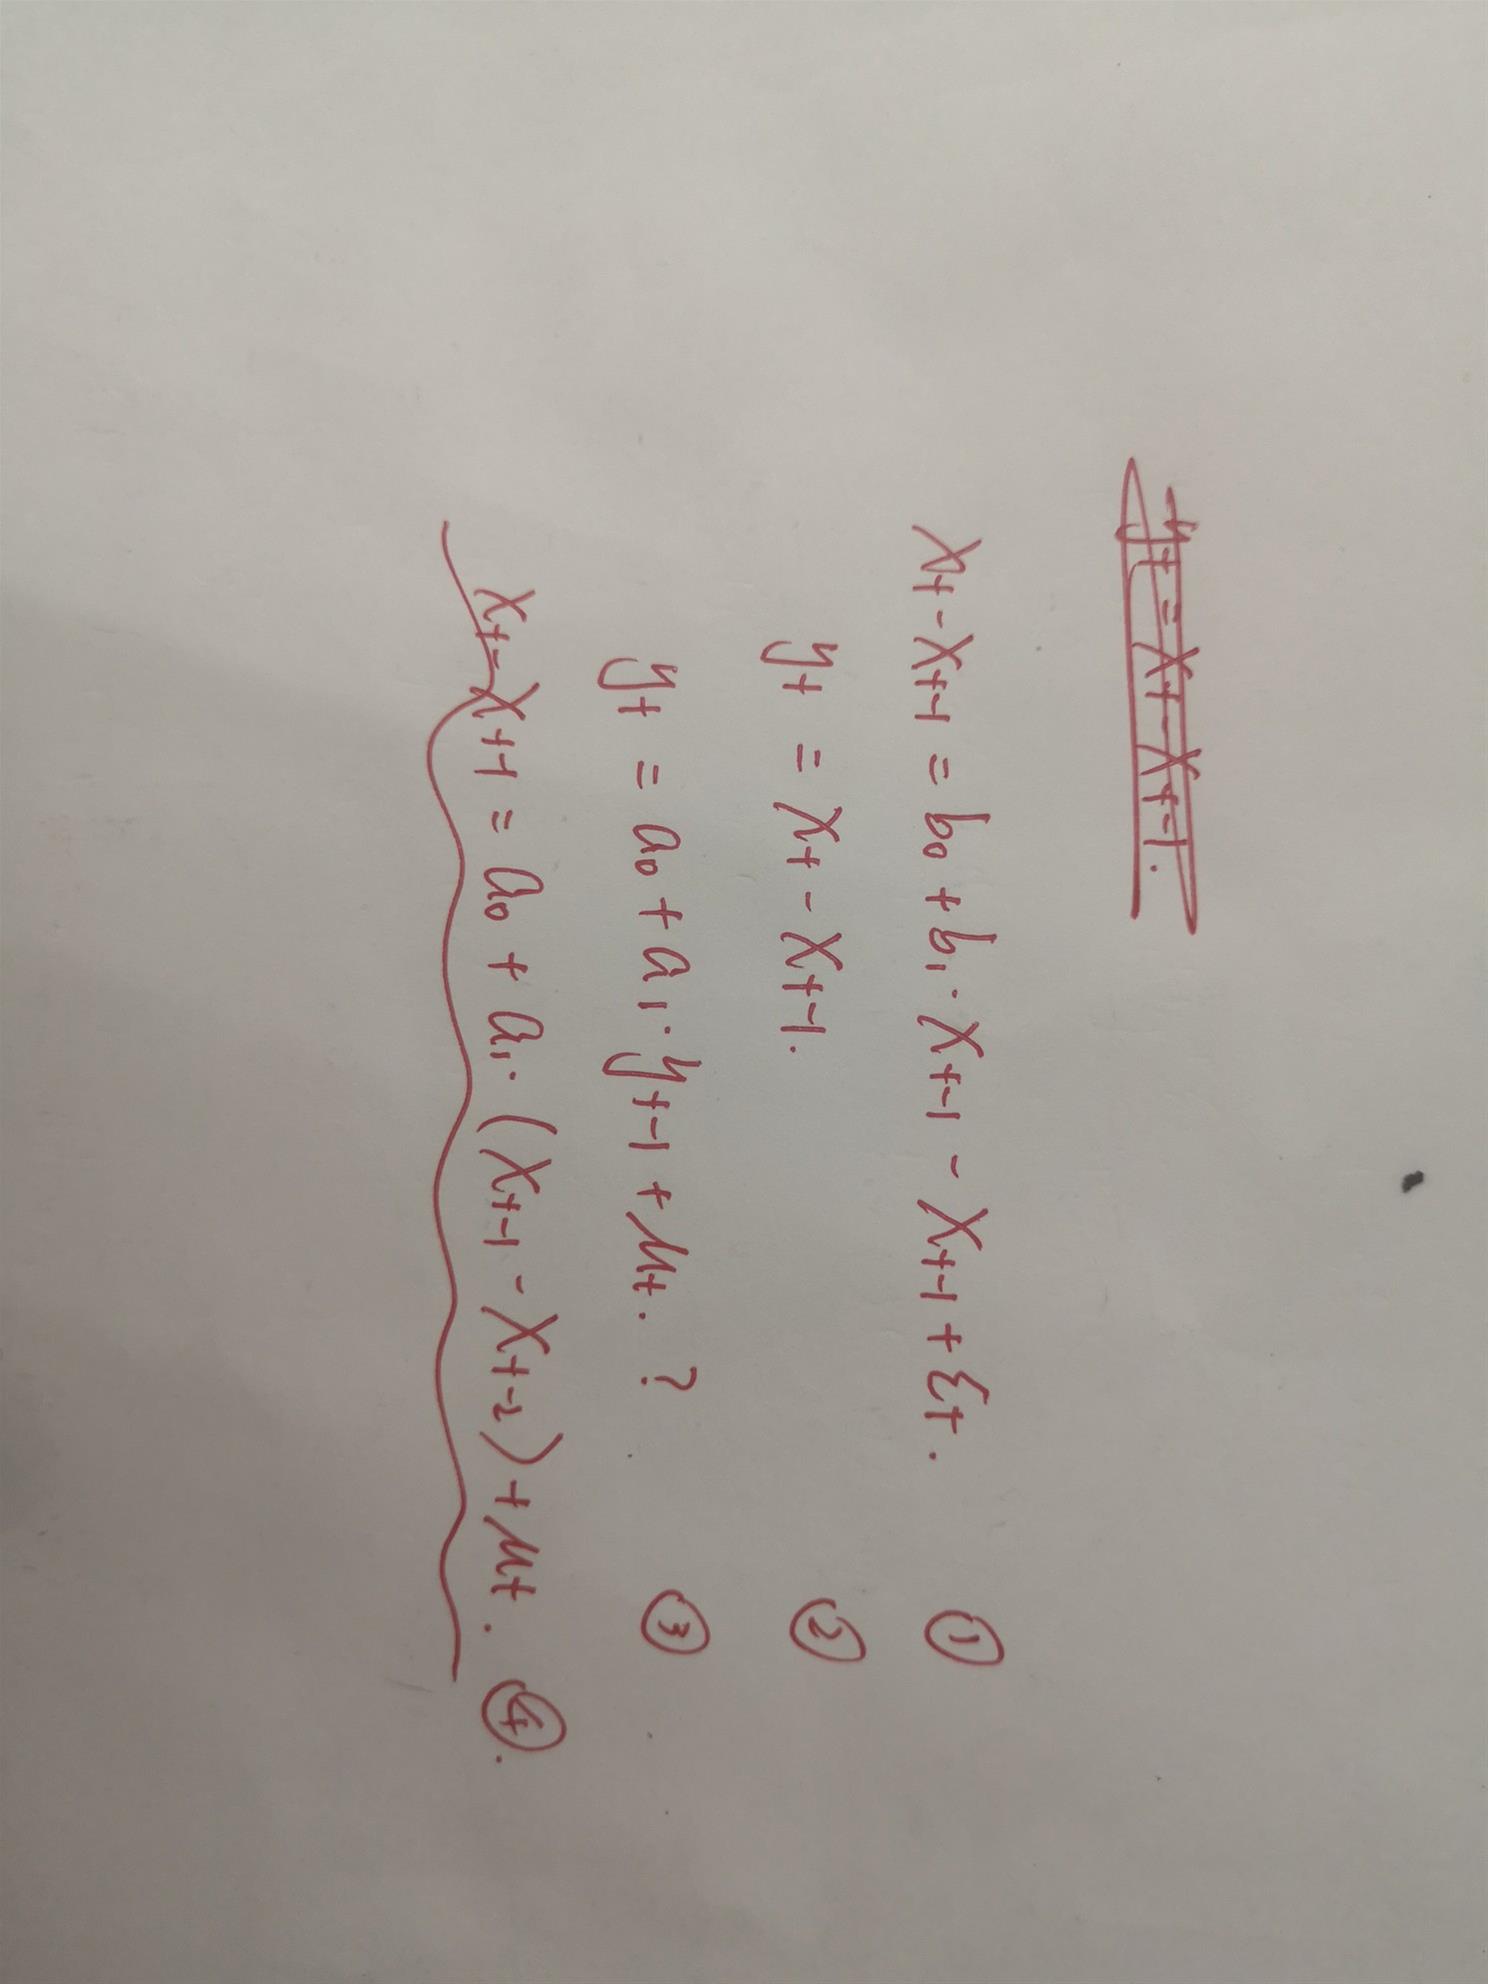 yt = xt - xt-1.
xt - xt-1 = b0 + b1 · xt-1 - xt-1 + εt. ①
yt = xt - xt-1. ②
yt = a0 + a1 · yt-1 + μt. ? ③
xt - xt-1 = a0 + a1 · (xt-1 - xt-2) + μt. ④